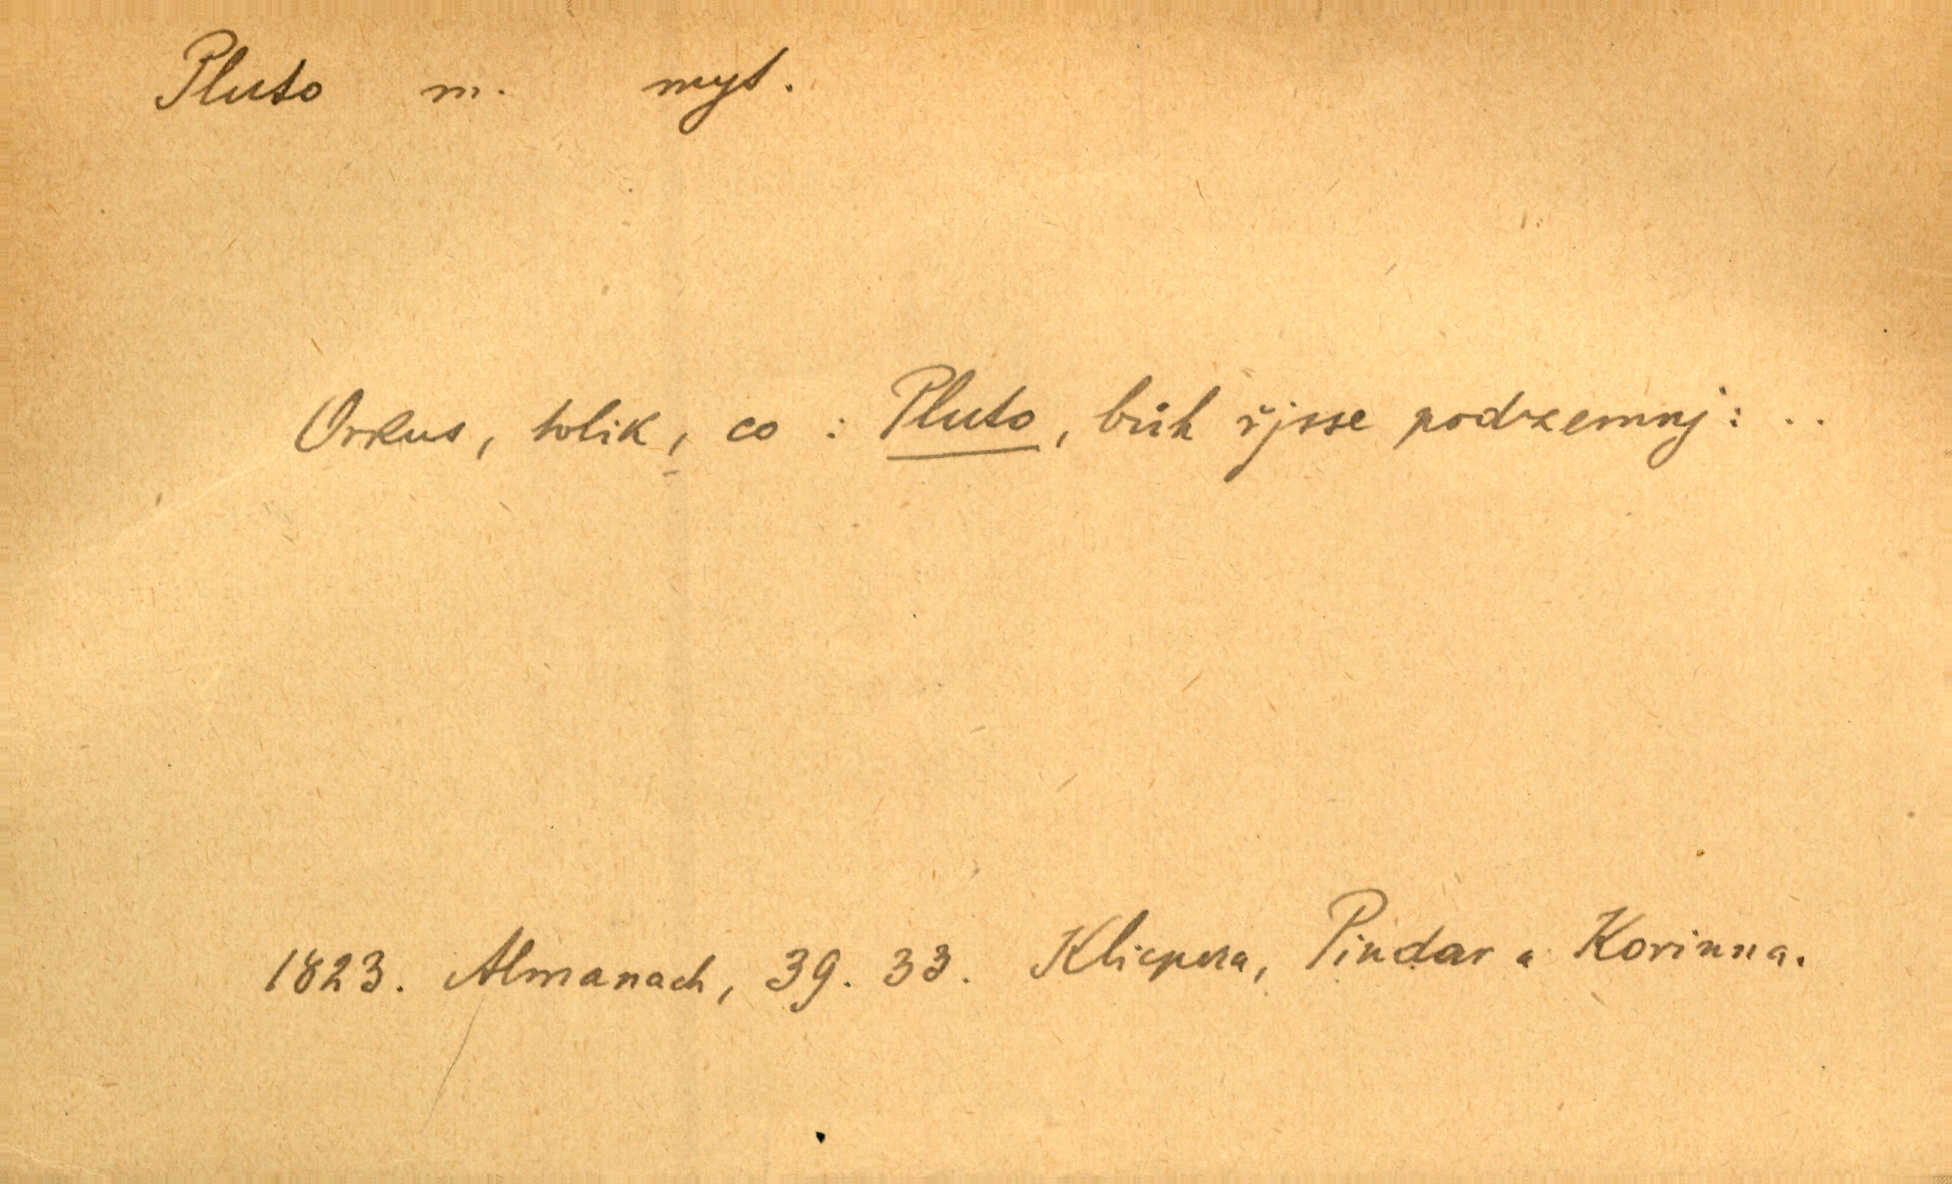 Pluto m. myt.
Orkus, tolik, co : Pluto, bůh řjsse podzemnj : ..
1823. Almanach, 39. 33. Klicpera, Pindar a Korinna.